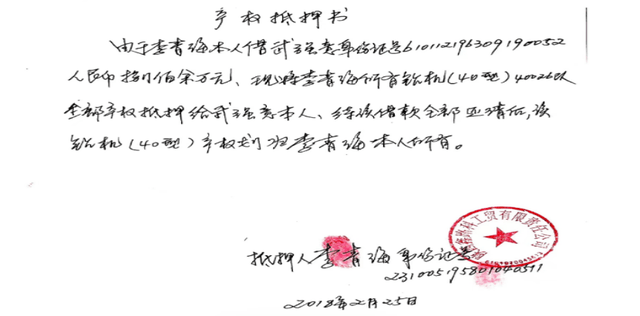 产权抵押书
由于李青海本人借武强意身份证号610112196309190052
人民币捌佰余万元、现将李青海所有钻机(40型)40026队
全部产权抵押给武强意本人、待该借款全部还清后,该
钻机(40型)产权划归李青海本人所有。
工贸有限责任公司
抵押人李青海 身份证号
231005195801040511
2018年2月25日